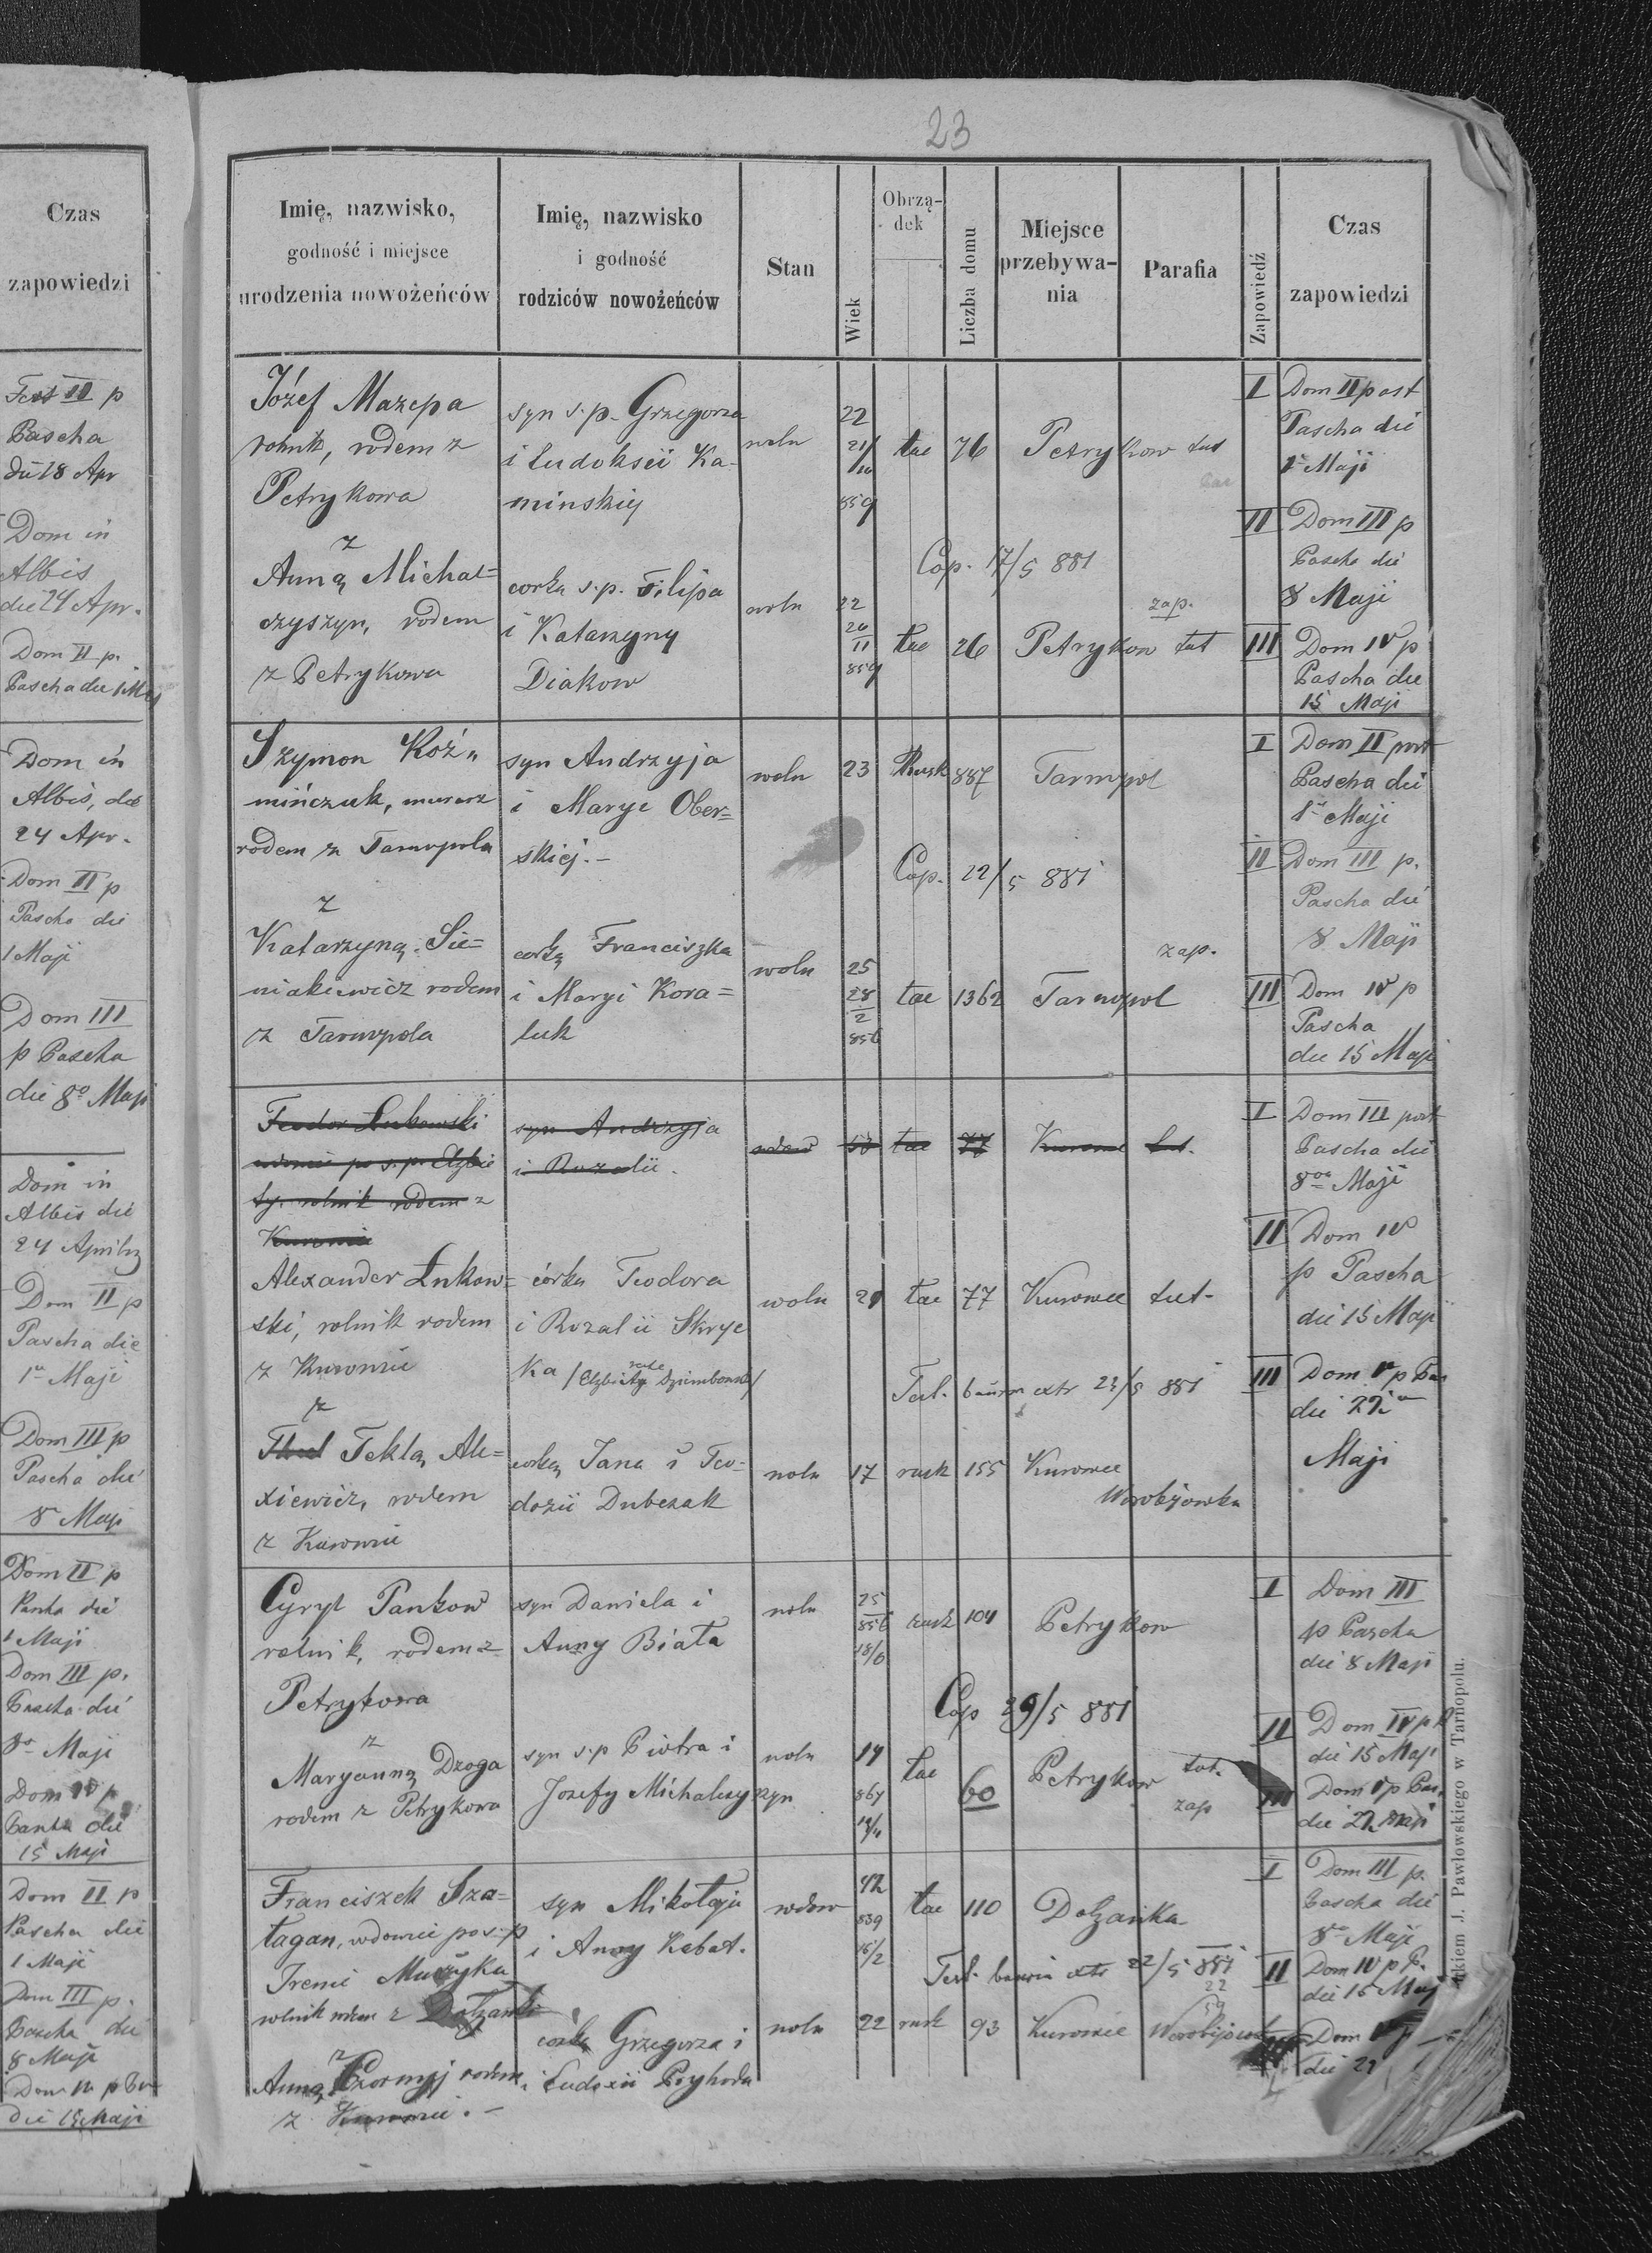 Czas
zapowiedzi
Fest II p
Pascha
die 18 Apr
Dom in
Albis
die 24 Apr.
Dom II p.
Pascha die 1 Maj
Dom in
Albis, die
24 Apr.
Dom II p
Pascha die
1 Maji
Dom III
p Pascha
die 8º Maji
Dom in
Albis die
24 Aprilis
Dom II p
Pascha die
1ª Maji
Dom III p
Pascha die
8ª Maji
Dom II p
Pascha die
1 Maji
Dom III p.
Pascha die
8ª Maji
Dom IV p
Pascha die
15 Maji
Dom II p
Pascha die
1 Maji
Dom III p.
Pascha die
8 Maji
Dom IV p Pas
die 15 Maji
23
Imię, nazwisko,
godność i miejsce
urodzenia nowożeńców
Imię, nazwisko
i godność
rodziców nowożeńców
Stan
Wiek
Obrzą-
dek
Liczba domu
Miejsce
przebywa-
nia
Parafia
Zapowiedź
Czas
zapowiedzi
Józef Mazepa
rolnik, rodem z
Petrykowa
syn s.p. Grzegorza
i Eudoksii Ka-
minskiy
woln
22
21/10
859
łac 76 Petrykow tut
I Dom II post
Pascha die
1ª Maji
II Dom III p
Pascha die
8 Maji
Cap. 17/5 881
z
Anną Michal=
czyszyn, rodem
z Petrykowa
corka s.p. Filipa
i Katarzyny
Diakow
woln
22
26
11
859
łac 26 Petrykow tut
zap.
III Dom IV p
Pascha die
15 Maji
Szymon Koź"
mińczuk, murarz
rodem z Tarnopola
syn Andrzyja
i Marye Ober=
skiej.-
woln 23 Rusk 887 Tarnopol
I Dom II post
Pascha die
1ª Maji
Cap. 22/5 881
II Dom III p.
Pascha die
8 Maji
z
Katarzyną Sie=
niakiewicz rodem
z Tarnopola
corką Franciszka
i Maryi Kora=
luk
woln
25
28
2
856
łac 1362 Tarnopol
zap.
III Dom IV p
Pascha
die 15 Maji
Teodor Łukowski
wdowiec po s.p. Elzbie
ty. rolnik rodem z
Kurowiec
syn Andrzyja
i Rozalii.
wdow łac 77 Kurowce tut.
I Dom III post
Pascha die
8va Maji
II Dom IV
p Pascha
die 15 Maji
Alexander Łukow=
ski, rolnik rodem
z Kurowiec
córka Teodora
i Rozalii Skryc
ka
woln 21 łac 77 Kurowce tut-
Test. bannor extr 23/5 881
III Dom V p Pas
die 22ª
Maji
z
Teklą Ale=
xiewicz, rodem
z Kurowiec
corką Jana i Teo=
dozii Dubczak
woln 17 rusk 155 Kurowce
Worobijowka
Cyryl Pankow
rolnik, rodem z
Petrykowa
syn Daniela i
Anny Biała
woln
25
856
18/6
rusk 104 Petrykow
I Dom III
p Pascha
die 8 Maji
Cap 29/5 881
II Dom IV p P
die 15 Maji
z
Maryanną Dzoga
rodem z Petrykowa
syn s.p Piotra i
Jozefy Michalczyszyn
woln
14
867
łac 60 Petrykow tut.
zap
III Dom V p Pas.
die 22 Maji
Franciszek Sza=
łagan, wdowiec po s.p
Irenie Muzyka
rolnik rodem z Dołzanki
syn Mikołaja
i Anny Kabat.
wdow
42
839
15/2
łac 110 Dołzanka
I Dom III p.
Pascha die
8va Maji
Test. bannor extr 22/5 881
II Dom IV p P.
die 15 Maj
z
Anną Czornyj rodem
z Kurowiec.-
corka Grzegorza i
Eudoxii Pryhoda
woln 22 rusk 93 Kurowce Worobijowka
Dom V
die 22
Drukiem J. Pawłowskiego w Tarnopolu.